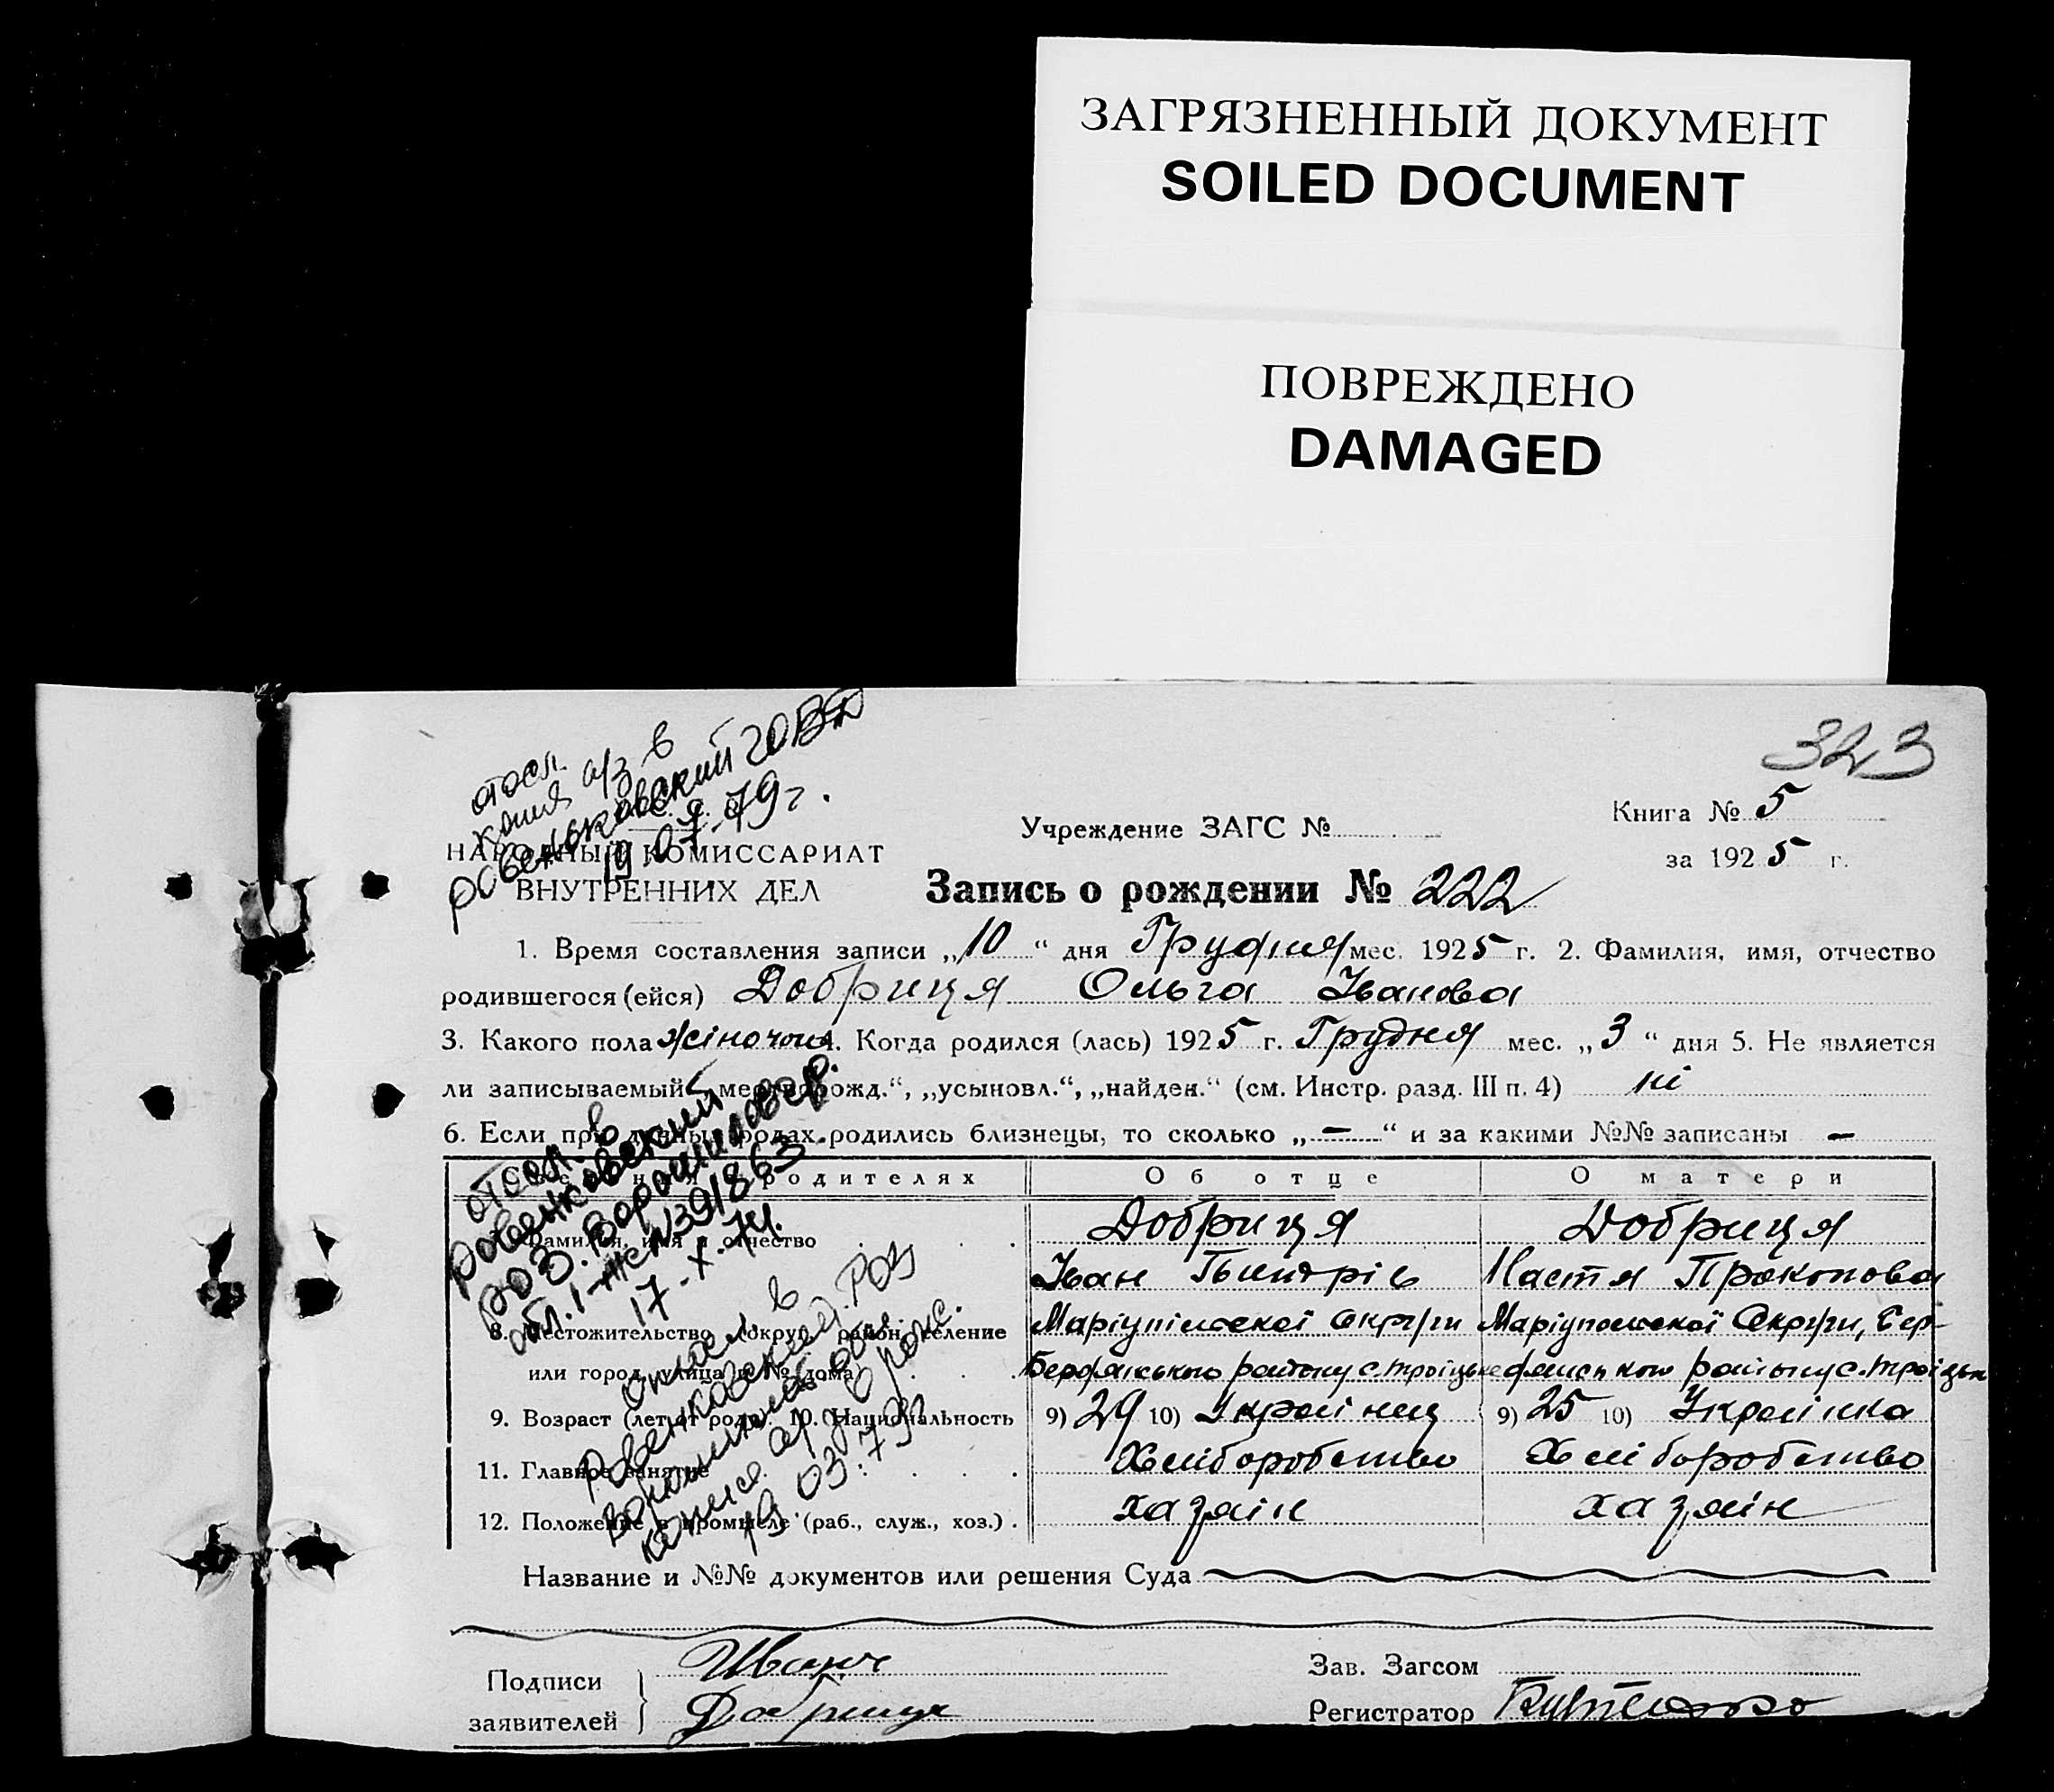 ЗАГРЯЗНЕННЫЙ ДОКУМЕНТ
SOILED DOCUMENT
ПОВРЕЖДЕНО
DAMAGED
323
отосл.
копия а/з в
ровеньковский ГОВД
19.07.79 г.
Книга № 5
Учреждение ЗАГС №
за 1925 г.
НАРОДНЫЙ КОМИССАРИАТ
ВНУТРЕННИХ ДЕЛ
Запись о рождении № 222
1. Время составления записи „10“ дня Грудня мес. 1925 г. 2. Фамилия, имя, отчество
родившегося (ейся) Добриця Ольга Іванова
3. Какого пола жіночои 4. Когда родился (лась) 1925 г. Грудня мес. „3“ дня 5. Не является
ли записываемый „мертворожд.“, „усыновл.“, „найден.“ (см. Инстр. разд. III п. 4) ні
6. Если при данных родах родились близнецы, то сколько „—“ и за какими №№ записаны —
отосл. в
ровеньковский
РОЗ. Ворошиловгр.
обл. 1-жс №391863.
17-X-74.
Сведения о родителях Об отце О матери
Фамилия, имя и отчество Добриця Добриця
Іван Настя Прокопова
8. Местожительство (округ, район, селение Маріупільскої Округи Маріупольскої Округи, Бер-
или город, улица и № дома) Бердянського району с. Троїцьке дянського району с. Троїцьке
9. Возраст (лет от роду). 10. Национальность 9) 29 10) Українець 9) 25 10) Українка
11. Главное занятие Хліборобство Хліборобство
12. Положение в промысле (раб., служ., хоз.) хазяїн хазяїн
в
Ровеньковский
19 03.79
Название и №№ документов или решения Суда
Подписи
заявителей
Иван
Добриця
Зав. Загсом
Регистратор